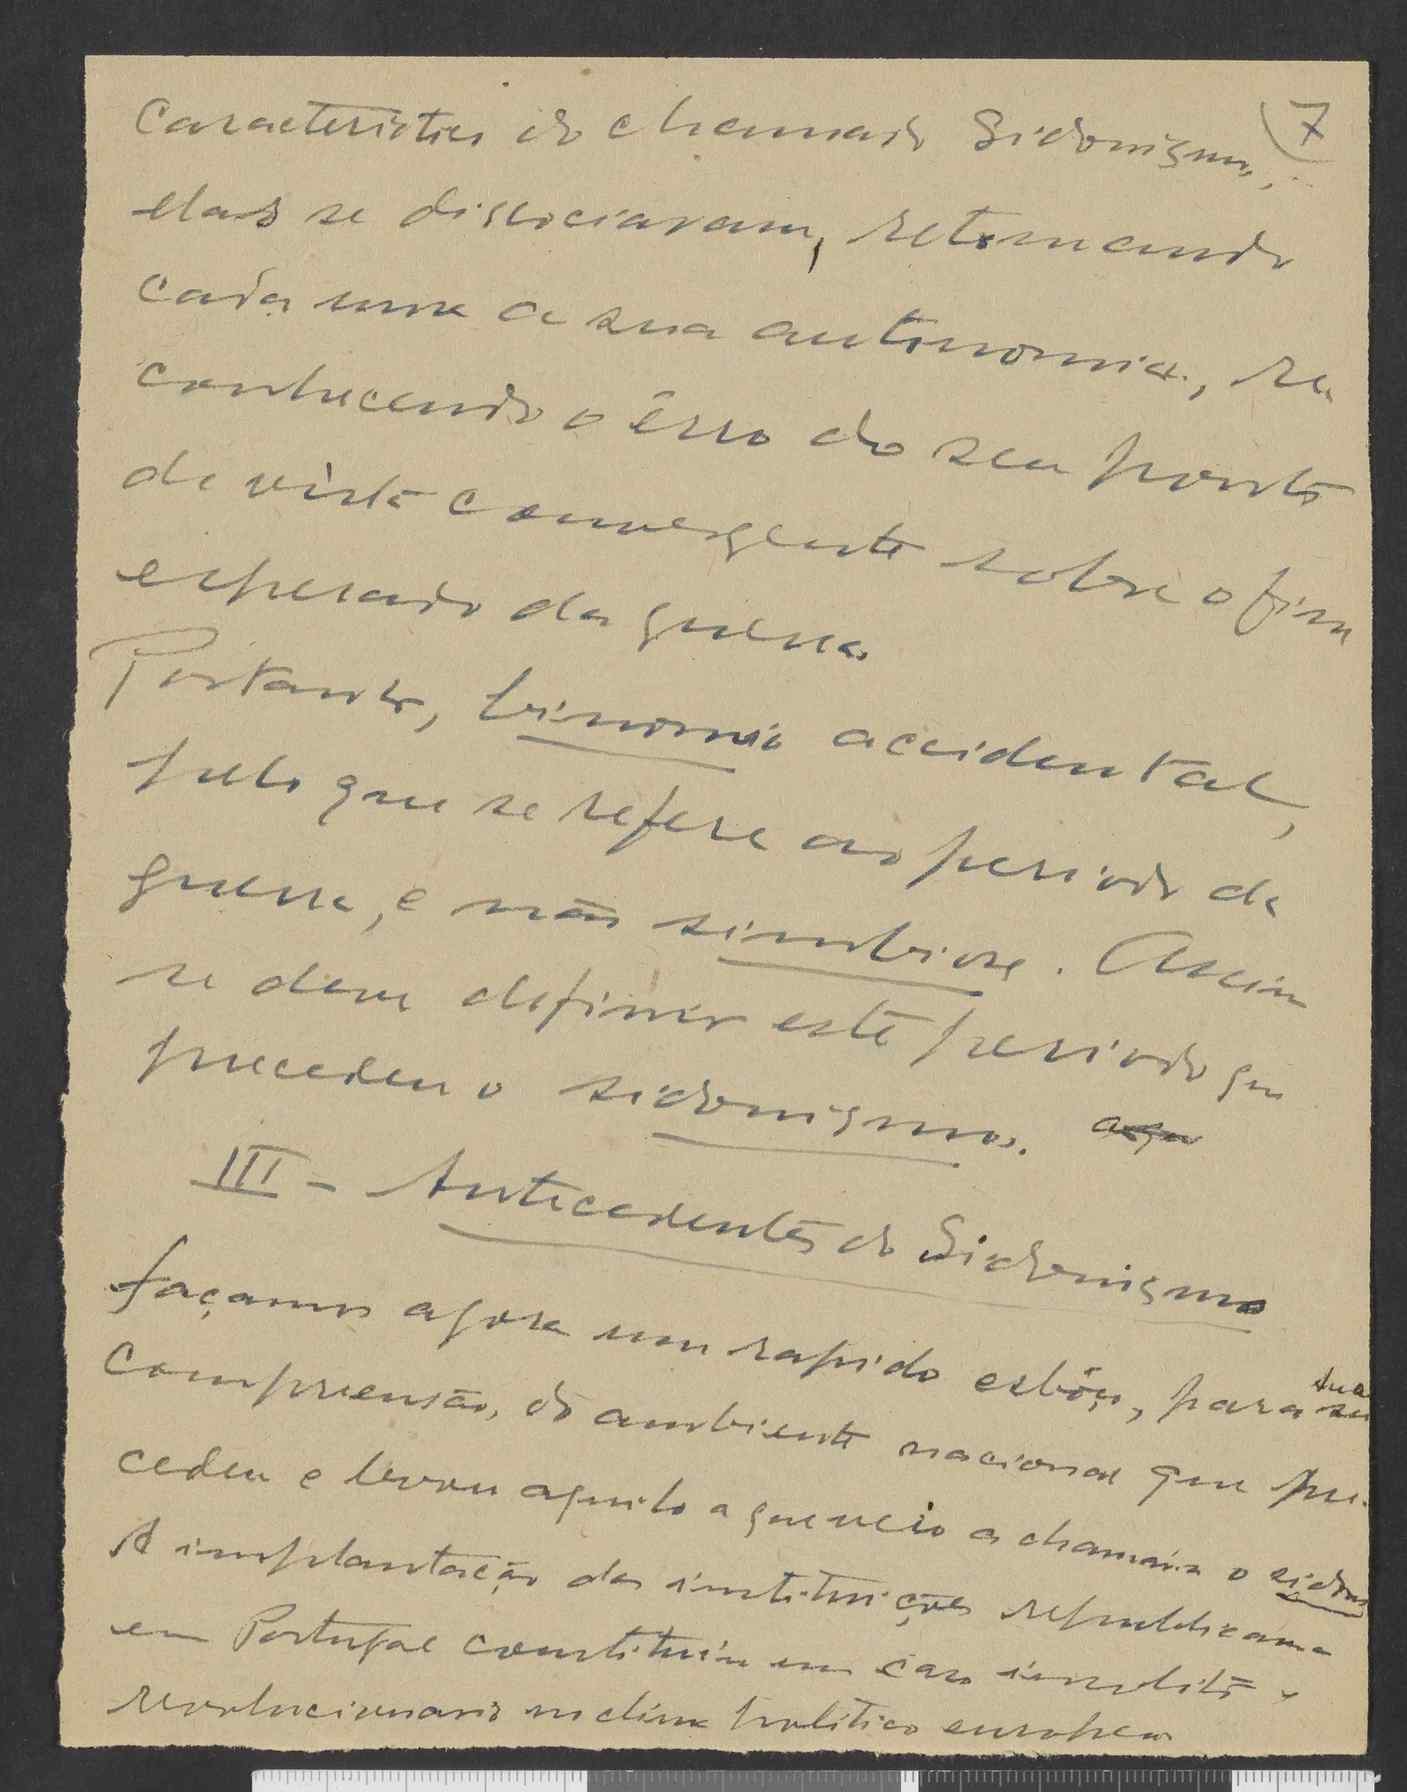 7
caracteristica do chamado Sidonismo,
elas se dissociaram, retomando
cada uma a sua autonomia, re-
conhecendo o êrro do seu ponto
de vista convergente sobre o fim
esperado da guerra.
Portanto, binomio accidental,
pelo que se refere ao periodo da
guerra, e não simbiose. Assim
se deve definir este periodo que
precedeu o sidonismo.
III - Antecedentes do Sidonismo
Façamos agora um rapido esbôço, para sua
compreensão, do ambiente nacional que pre-
cedeu e levou aquilo a que veio a chamar-se o sidonis
A implantação das instituições republicanas
em Portugal constituiu um caso insolito e
revolucionario no clima politico europeu